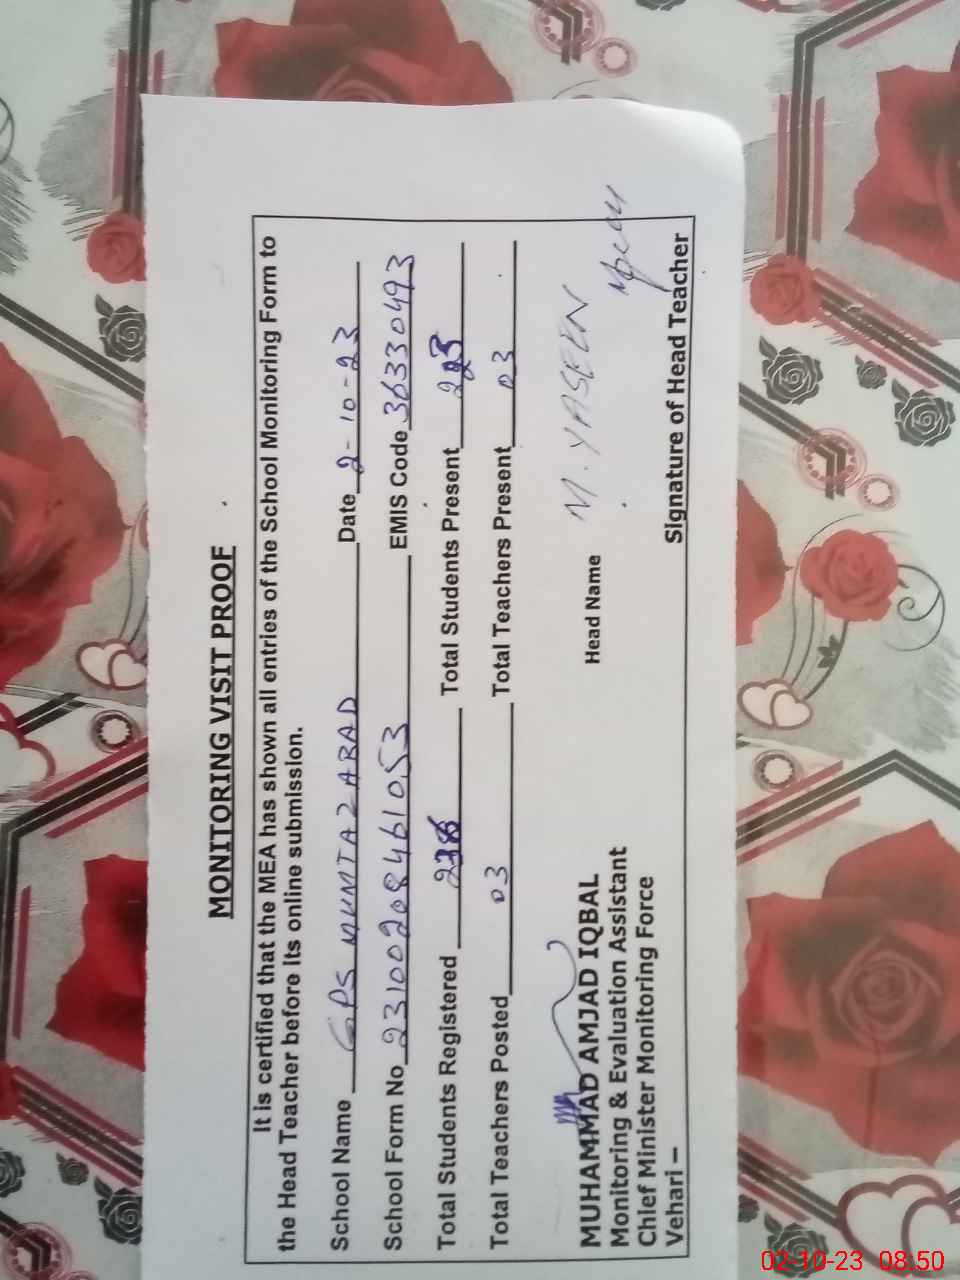 MONITORING VISIT PROOF
It is certified that the MEA has shown all entries of the School Monitoring Form to
the Head Teacher before its online submission.
School Name GPS MUMTAZ ABAD Date 2-10-23
School Form No 23100208461053 EMIS Code 36330493
Total Students Registered Total Students Present
Total Teachers Posted 03 Total Teachers Present 03
MUHAMMAD AMJAD IQBAL Head Name M. YASEEN
Monitoring & Evaluation Assistant
Chief Minister Monitoring Force
Vehari – Signature of Head Teacher
02-10-23 08.50